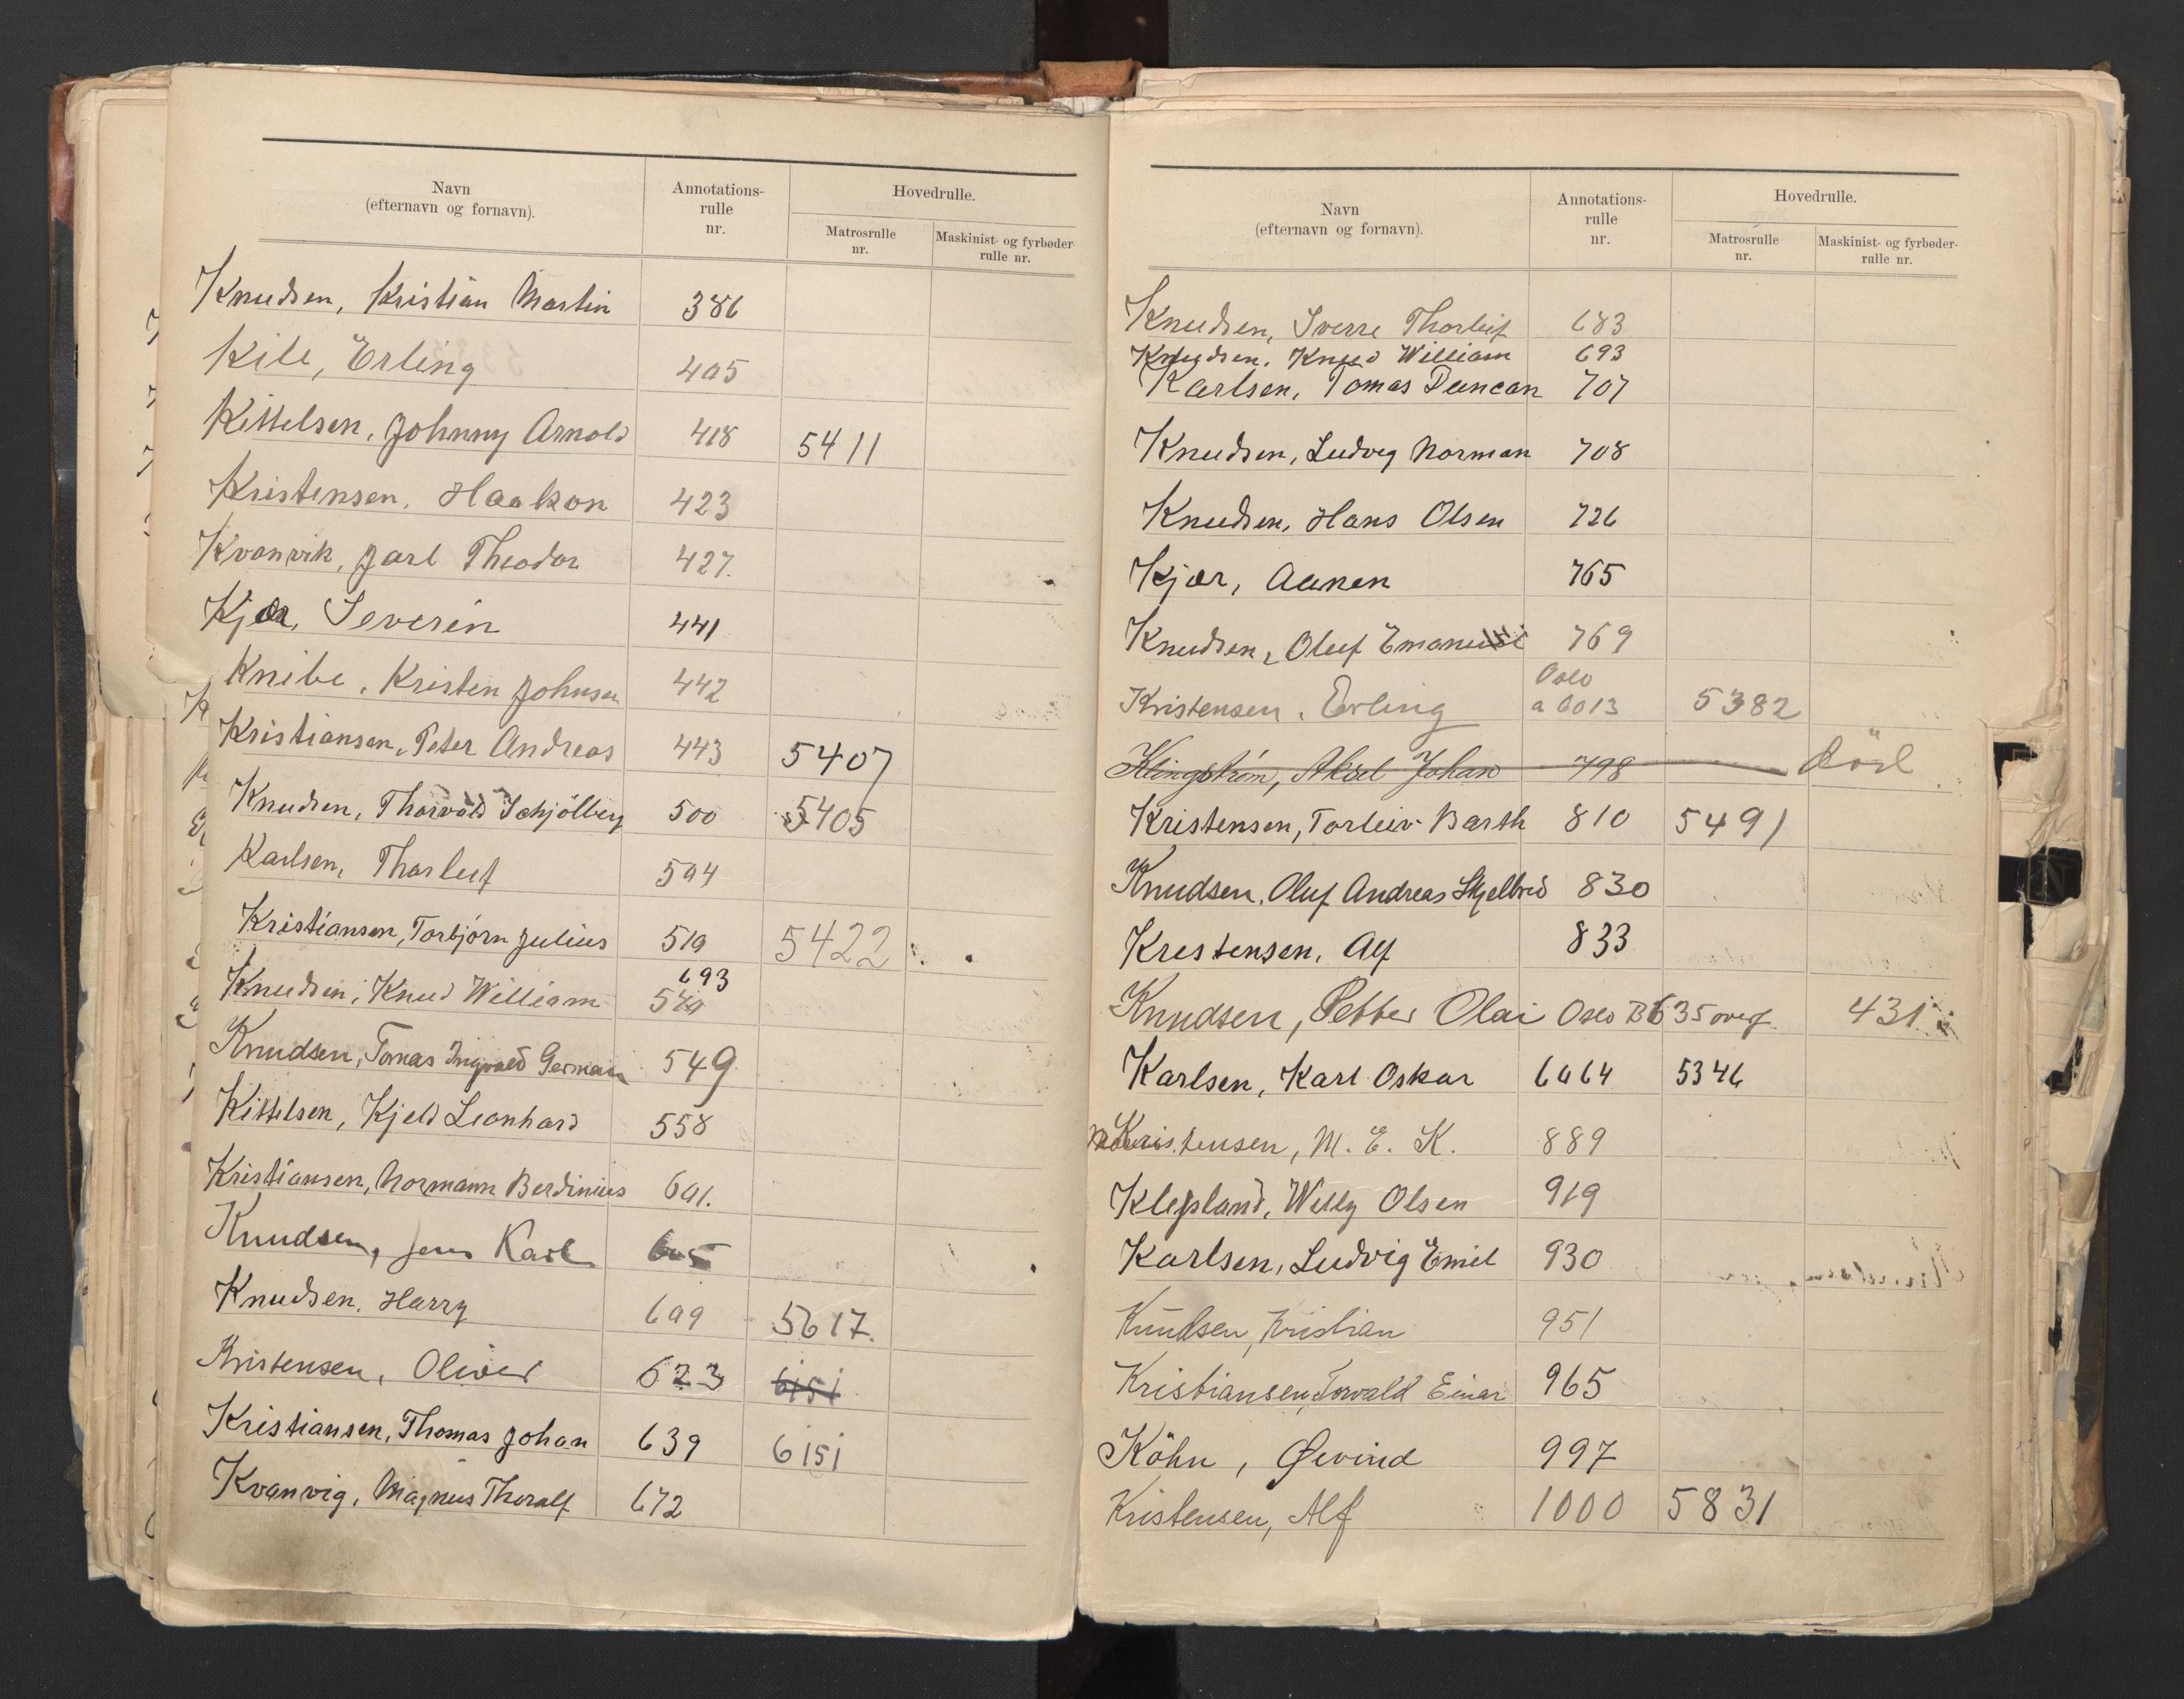 Navn
(efternavn og fornavn).
Annotations-
rulle
nr.
Hovedrulle.
Matrosrulle
nr.
Maskinist- og fyrbøder-
rulle nr.
Knudsen, Kristian Martin 386
Kile, Erling 405
Kittelsen, Johnny Arnold 418 5411
Kristensen, Haakon 423
Kvanvik, Jarl Theodor 427.
Kjær, Severin 441
Knibe, Kristen Johnsen 442
Kristiansen, Peter Andreas 443 5407
Knudsen, Thorvald Schjölberg 500 5405
Karlsen, Thorleif 504
Kristiansen, Torbjörn Julius 510 5422
693
Knudsen, Knud William 540
Knudsen, Tomas Ingvald German 549
Kittelsen, Kjeld Leonhard 558
Kristiansen, Normann Berdinius 601.
Knudsen, Jens Karl 605
Knudsen, Harry 609 5617.
Kristensen, Oliver 623 6151
Kristiansen, Thomas Johan 639 6151
Kvanvig, Magnus Thoralf 672
Navn
(efternavn og fornavn).
Annotations-
rulle
nr.
Hovedrulle.
Matrosrulle
nr.
Maskinist- og fyrbøder-
rulle nr.
Knudsen, Sverre Thorleif 683
Knudsen, Knud William 693
Karlsen, Tomas Duncan 707
Knudsen, Ludvig Norman 708
Knudsen, Hans Olsen 726
Kjær, Aanen 765
Knudsen, Oluf Emanuel 769
Oslo
Kristensen, Erling a 6013 5382
Klingström, Aksel Johan 798
Kristensen, Torleiv Barth 810 5491
Knudsen, Oluf Andreas Skjelbred 830
Krestensen, Alf 833
Knudsen, Petter Olai Oslo B635 overf. 431
Karlsen, Karl Oskar 6064 5346
Kristensen, M. E. K. 889
Klepland, Willy Olsen 919
Karlsen, Ludvig Emil 930
Knudsen, Kristian 951
Kristiansen, Torvald Einar 965
Köhn, Øivind 997
Kristensen, Alf 1000 5831